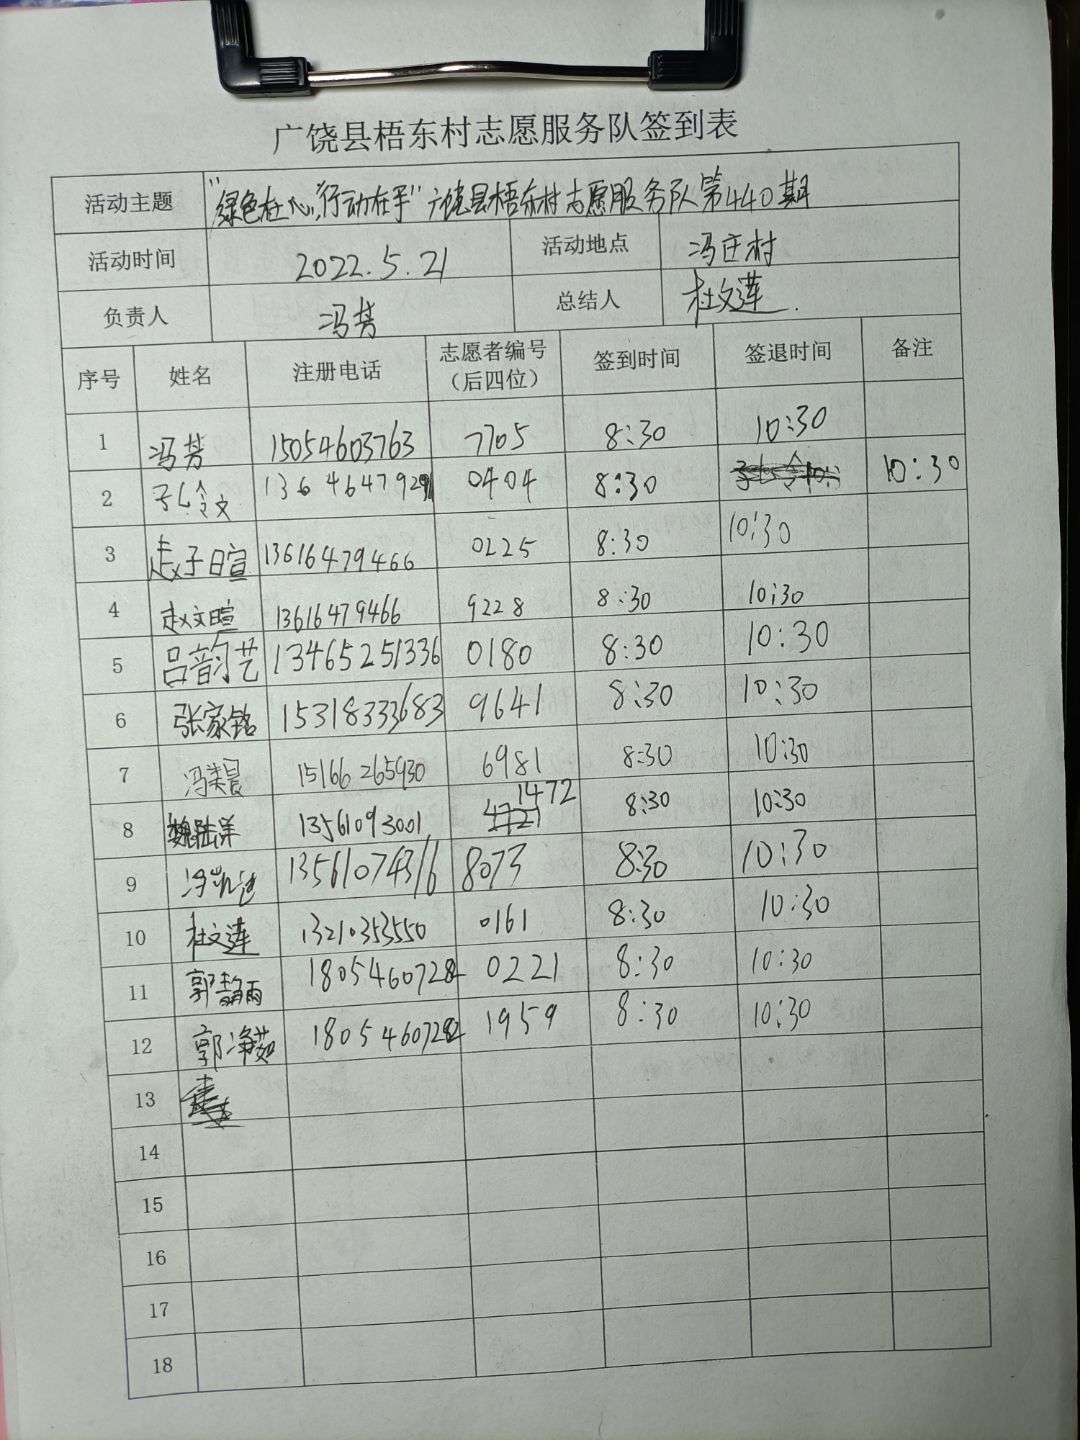 广饶县梧东村志愿服务队签到表
活动主题 "绿色在心,行动在手"广饶县梧东村志愿服务队第440期
活动时间 2022.5.21 活动地点 冯庄村
负责人 冯芳 总结人 杜文莲.
序号 姓名 注册电话 志愿者编号（后四位） 签到时间 签退时间 备注
1 冯芳 15054603763 7705 8:30 10:30
2 0404 8:30 10:30
3 赵子日宣 13616479466 0225 8:30 10:30
4 赵文暄 13616479466 9228 8:30 10:30
5 吕韵艺 13465251336 0180 8:30 10:30
6 张家铭 15318333683 9641 8:30 10:30
7 15166265930 6981 8:30 10:30
8 魏陆洋 13561093001 1472 8:30 10:30
9 13561074316 8073 8:30 10:30
10 杜文莲 13210353550 0161 8:30 10:30
11 郭静雨 18054607282 0221 8:30 10:30
12 郭净茹 18054607282 1959 8:30 10:30
13
14
15
16
17
18